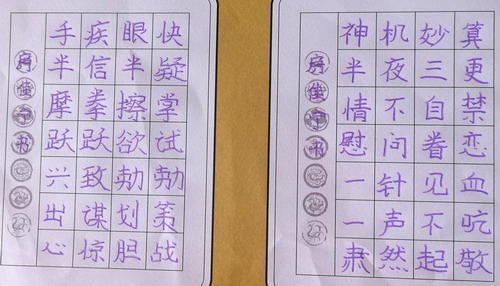 手疾眼快
半信半疑
摩拳擦掌
跃跃欲试
兴致勃勃
出谋划策
心惊胆战
神机妙算
半夜三更
情不自禁
慰问眷恋
一针见血
一声不吭
肃然起敬